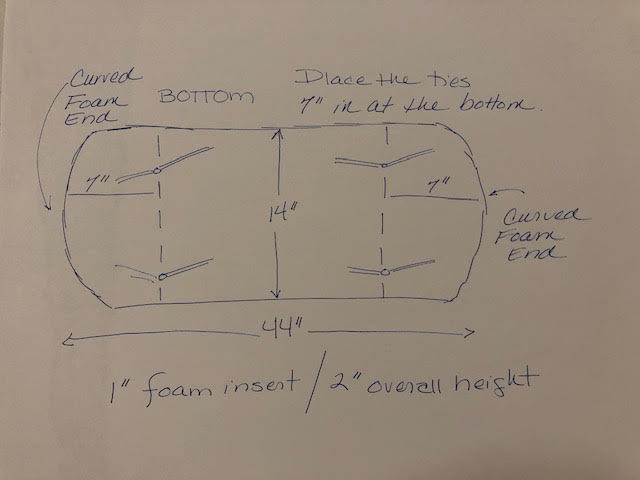 Curved
Foam
End
BOTTOM
Place the ties
7" in at the bottom.
7"
14"
7"
Curved
Foam
End
44"
1" foam insert / 2" overall height